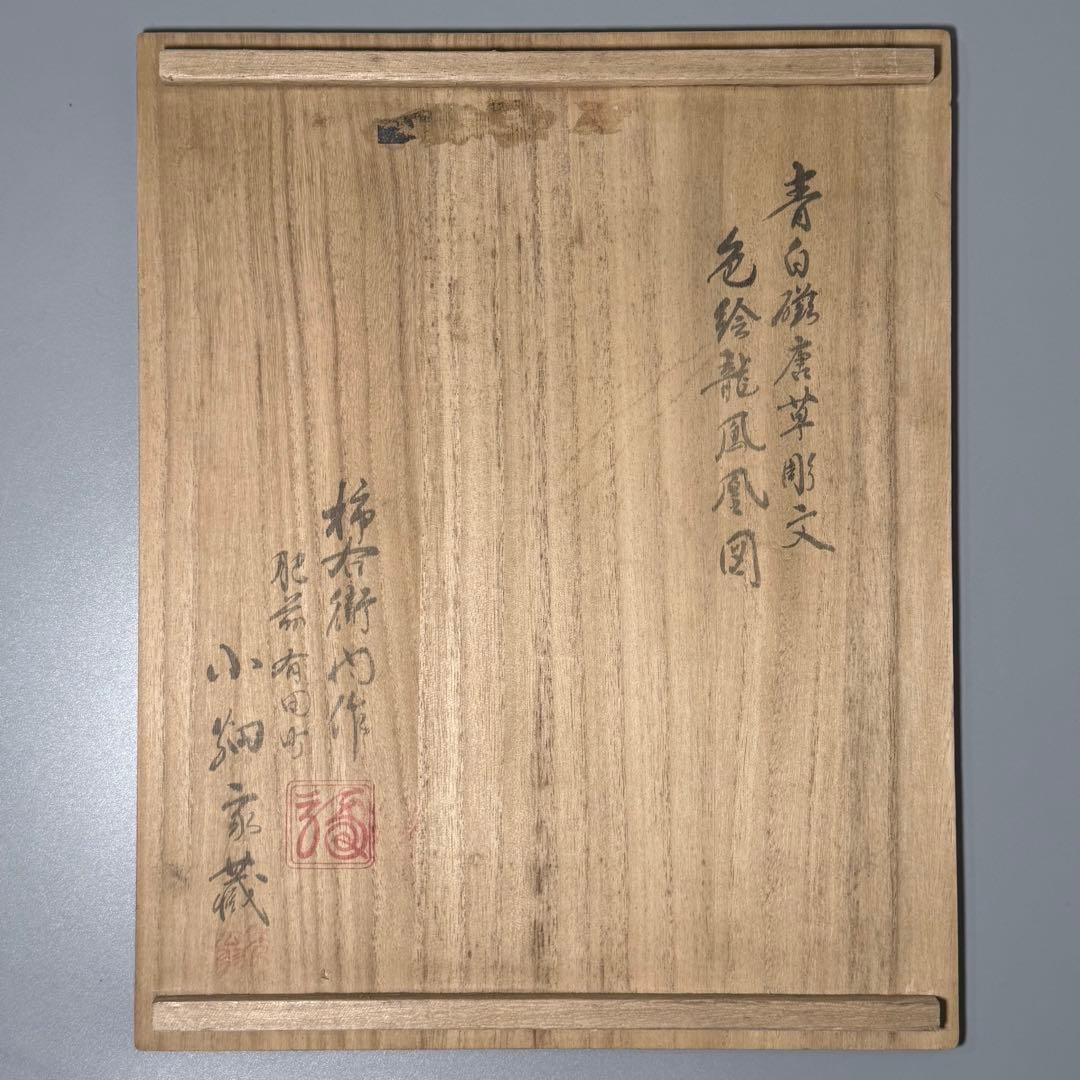 青白磁唐草彫文
色絵龍鳳凰図
柿右衛門作
肥前有田町
小畑家蔵
福